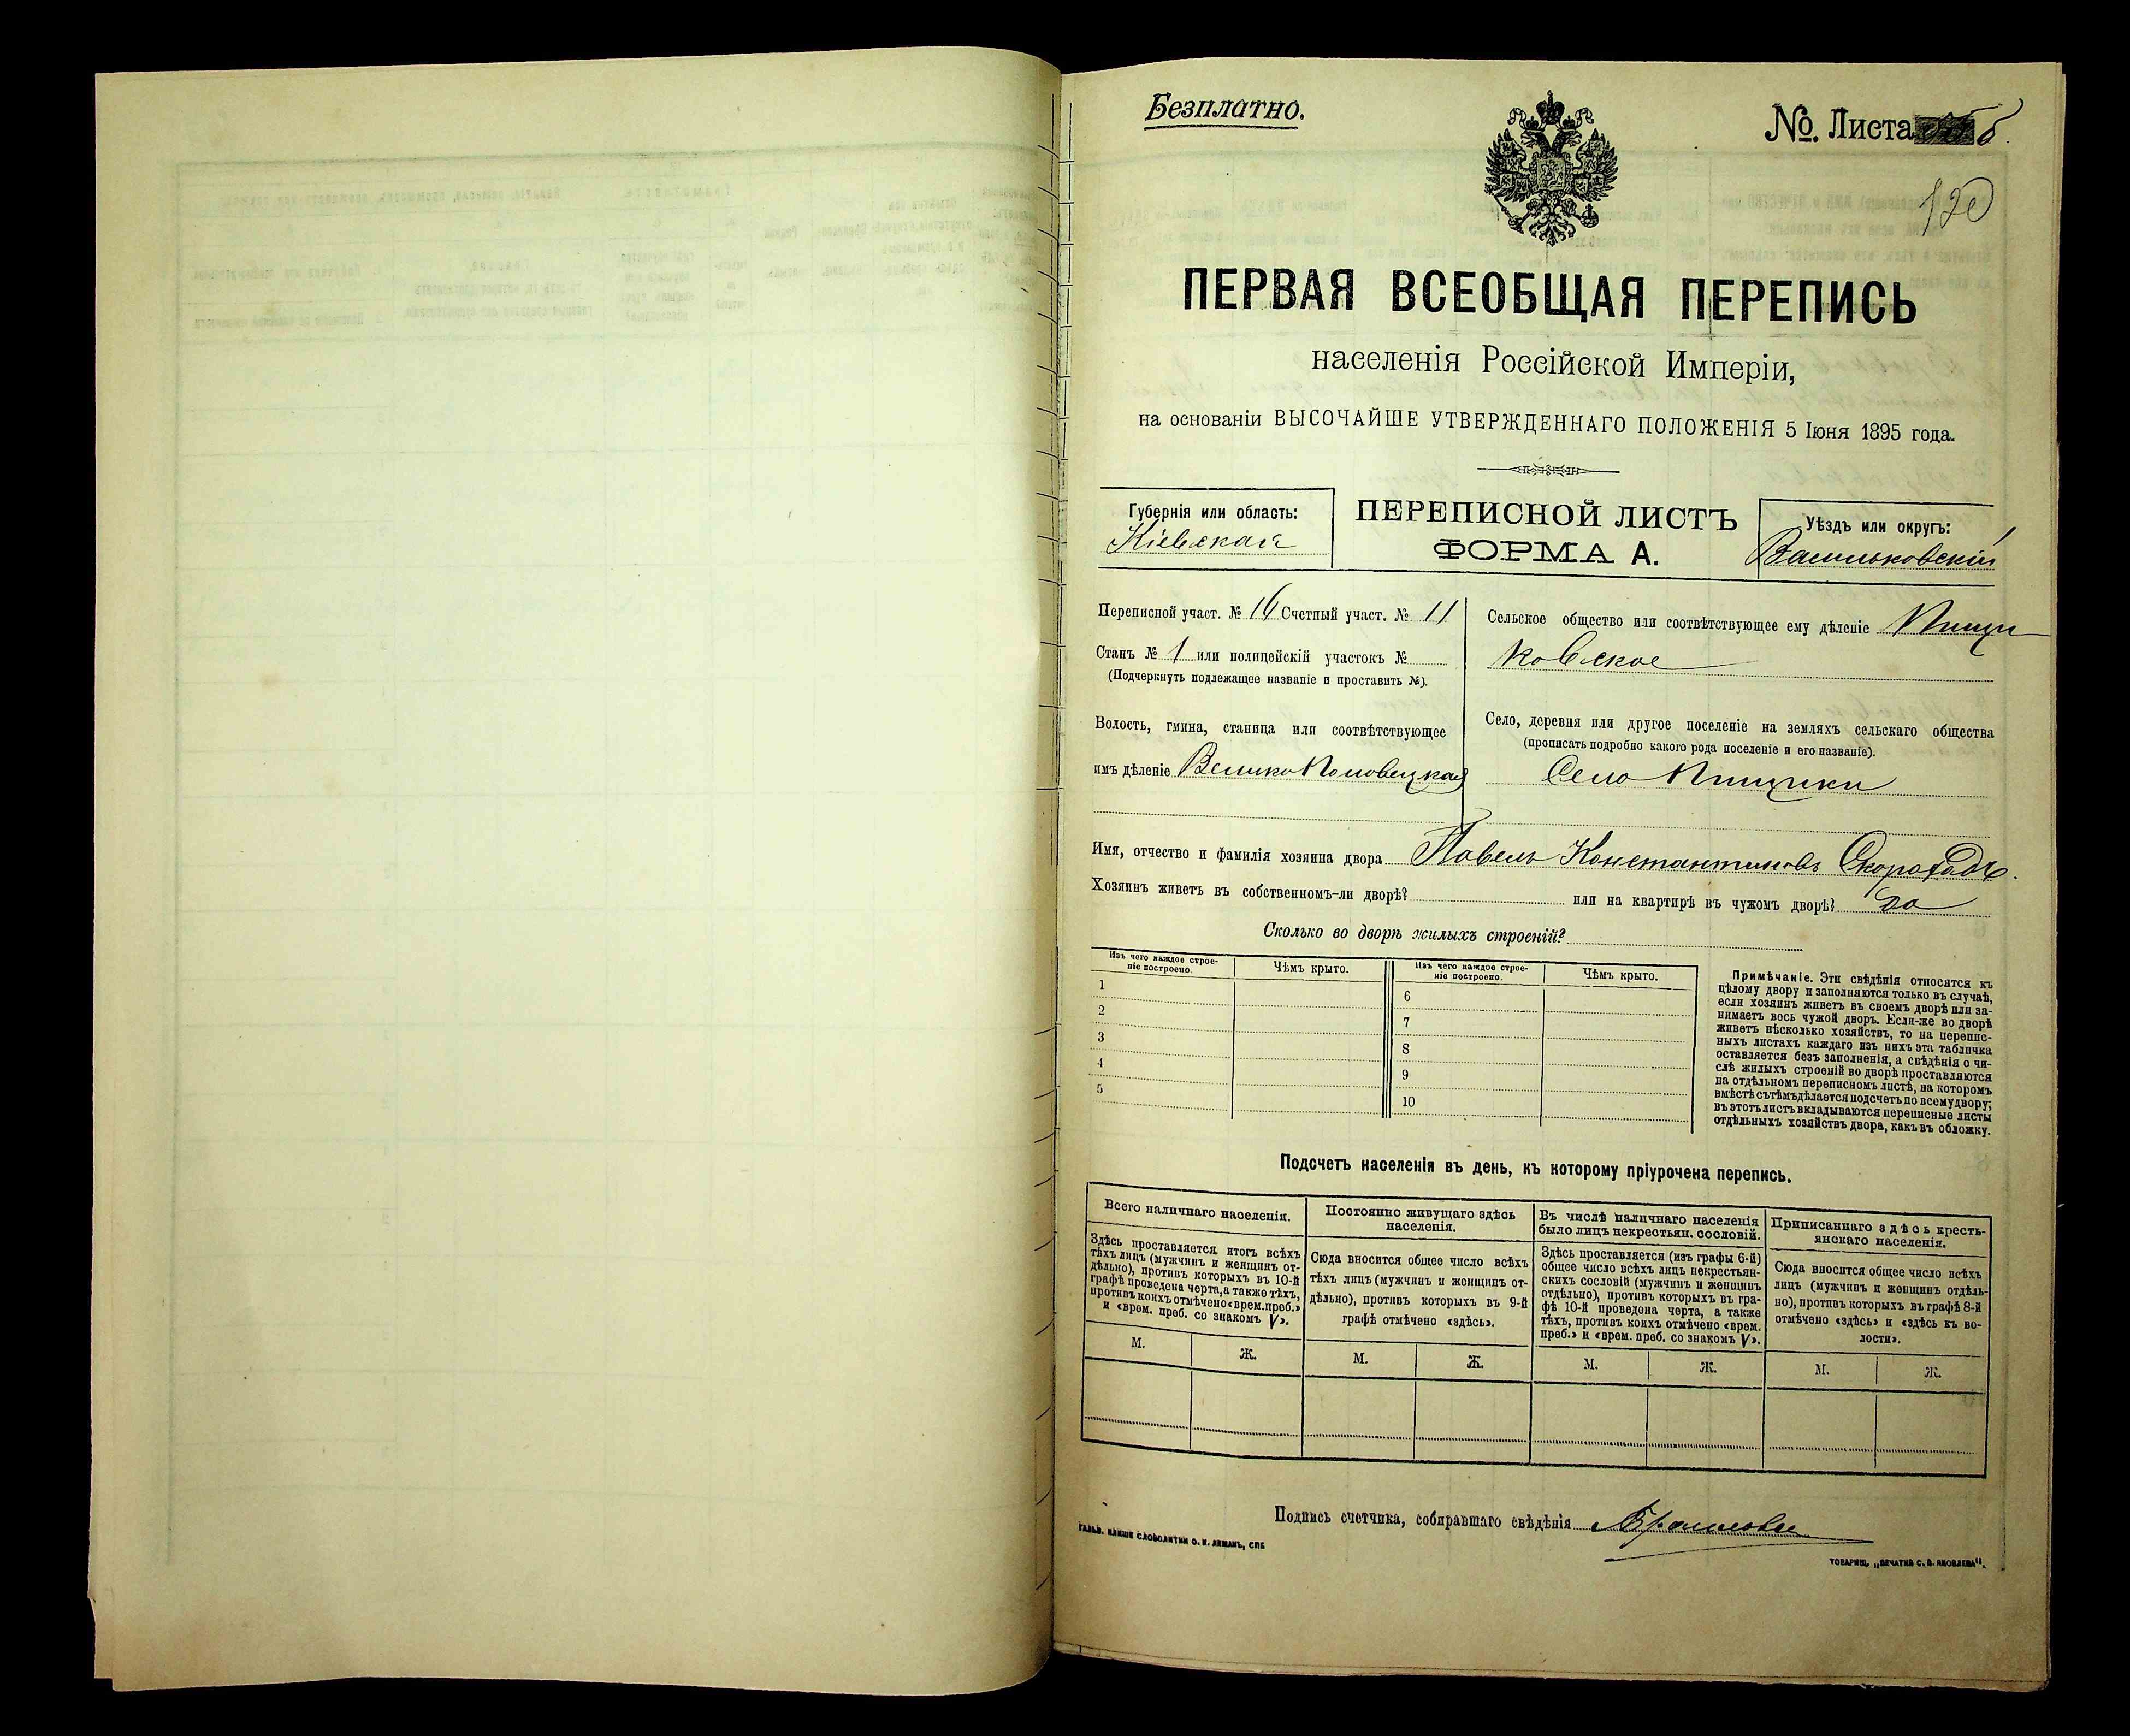 Безплатно.
№. Листа б.
120
ПЕРВАЯ ВСЕОБЩАЯ ПЕРЕПИСЬ
населенія Россійской Имперіи,
на основаніи ВЫСОЧАЙШЕ УТВЕРЖДЕННАГО ПОЛОЖЕНІЯ 5 Іюня 1895 года.
Губернія или область:
Кіевская
ПЕРЕПИСНОЙ ЛИСТЪ
ФОРМА А.
Уѣздъ или округъ:
Васильковскій
Переписной участ. № 16 Счетный участ. № 11
Станъ № 1 или полицейскій участокъ №
(Подчеркнуть подлежащее названіе и проставить №).
Волость, гмина, станица или соотвѣтствующее
имъ дѣленіе Велико Половецкая
Сельское общество или соотвѣтствующее ему дѣленіе Пищи
ковское
Село, деревня или другое поселеніе на земляхъ сельскаго общества
(прописать подробно какого рода поселеніе и его названіе).
Село Пищики
Имя, отчество и фамилія хозяина двора Павелъ Константиновъ Скороходъ.
Хозяинъ живетъ въ собственномъ-ли дворѣ? или на квартирѣ въ чужомъ дворѣ? да
Сколько во дворѣ жилыхъ строеній?
Изъ чего каждое строе-
ніе построено.
Чѣмъ крыто.
Изъ чего каждое строе-
ніе построено.
Чѣмъ крыто.
1
2
3
4
5
6
7
8
9
10
Примѣчаніе. Эти свѣдѣнія относятся къ
цѣлому двору и заполняются только въ случаѣ,
если хозяинъ живетъ въ своемъ дворѣ или за-
нимаетъ весь чужой дворъ. Если-же во дворѣ
живетъ нѣсколько хозяйствъ, то на перепис-
ныхъ листахъ каждаго изъ нихъ эта табличка
оставляется безъ заполненія, а свѣдѣнія о чи-
слѣ жилыхъ строеній во дворѣ проставляются
на отдѣльномъ переписномъ листѣ, на которомъ
вмѣстѣ съ тѣмъ дѣлается подсчетъ по всему двору;
въ этотъ листъ вкладываются переписные листы
отдѣльныхъ хозяйствъ двора, какъ въ обложку.
Подсчетъ населенія въ день, къ которому пріурочена перепись.
Всего наличнаго населенія.
Здѣсь проставляется итогъ всѣхъ
тѣхъ лицъ (мужчинъ и женщинъ от-
дѣльно), противъ которыхъ въ 10-й
графѣ проведена черта, а также тѣхъ,
противъ коихъ отмѣчено «врем. преб.»
и «врем. преб. со знакомъ V».
М.
Ж.
Постоянно живущаго здѣсь
населенія.
Сюда вносится общее число всѣхъ
тѣхъ лицъ (мужчинъ и женщинъ от-
дѣльно), противъ которыхъ въ 9-й
графѣ отмѣчено «здѣсь».
М.
Ж.
Въ числѣ наличнаго населенія
было лицъ некрестьян. сословій.
Здѣсь проставляется (изъ графы 6-й)
общее число всѣхъ лицъ некрестьян-
скихъ сословій (мужчинъ и женщинъ
отдѣльно), противъ которыхъ въ гра-
фѣ 10-й проведена черта, а также
тѣхъ, противъ коихъ отмѣчено «врем.
преб.» и «врем. преб. со знакомъ V».
М.
Ж.
Приписаннаго здѣсь кресть-
янскаго населенія.
Сюда вносится общее число всѣхъ
лицъ (мужчинъ и женщинъ отдѣль-
но), противъ которыхъ въ графѣ 8-й
отмѣчено «здѣсь» и «здѣсь къ во-
лости».
М.
Ж.
Подпись счетчика, собиравшаго свѣдѣнія
ГАЛЬВ. КЛИШЕ СЛОВОЛИТНИ О. И. ЛЕМАНЪ, СПБ
ТОВАРИЩ. „ПЕЧАТНЯ С. П. ЯКОВЛЕВА".